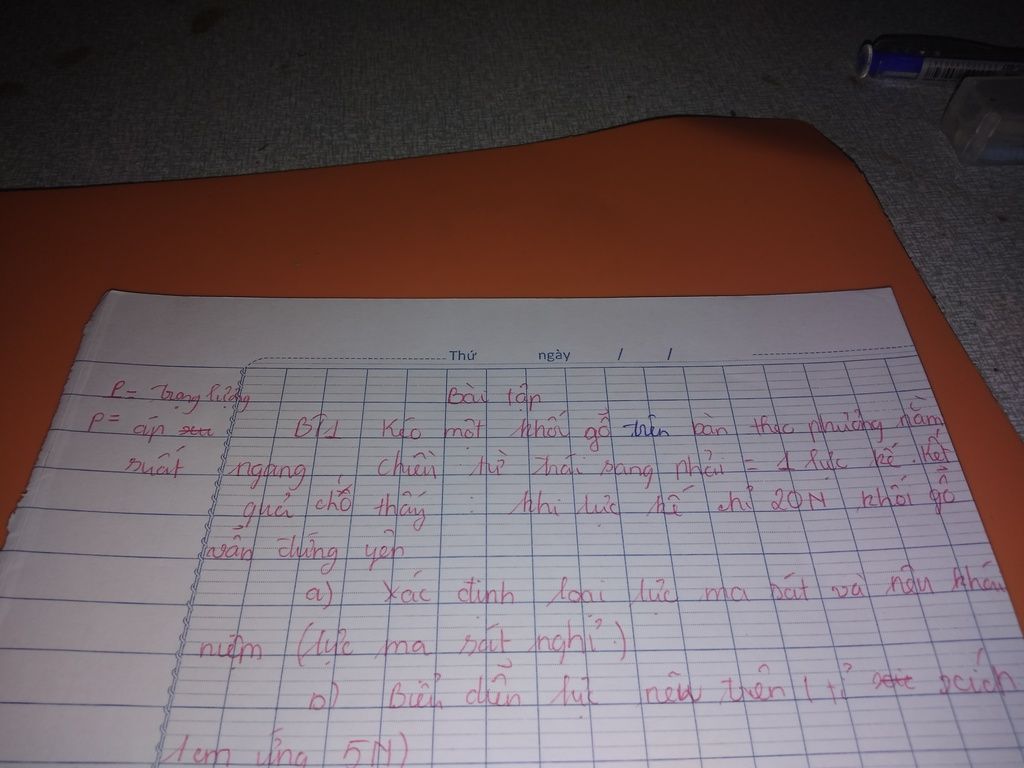 Thứ ngày / /
P = Trọng lượng
Bài tập
P = áp
suất
BT1 Kéo một khối gỗ trên bàn theo phương nằm
ngang, chiều từ trái sang phải = 1 lực kế. Kết
quả chỗ thấy : khi lực kế chỉ 20N khối gỗ
vẫn đứng yên
a) Xác định loại lực ma sát và nêu khái
niệm (lực ma sát nghỉ.)
b) Biểu diễn lực nêu trên (tỉ xích
1cm ứng 5N)